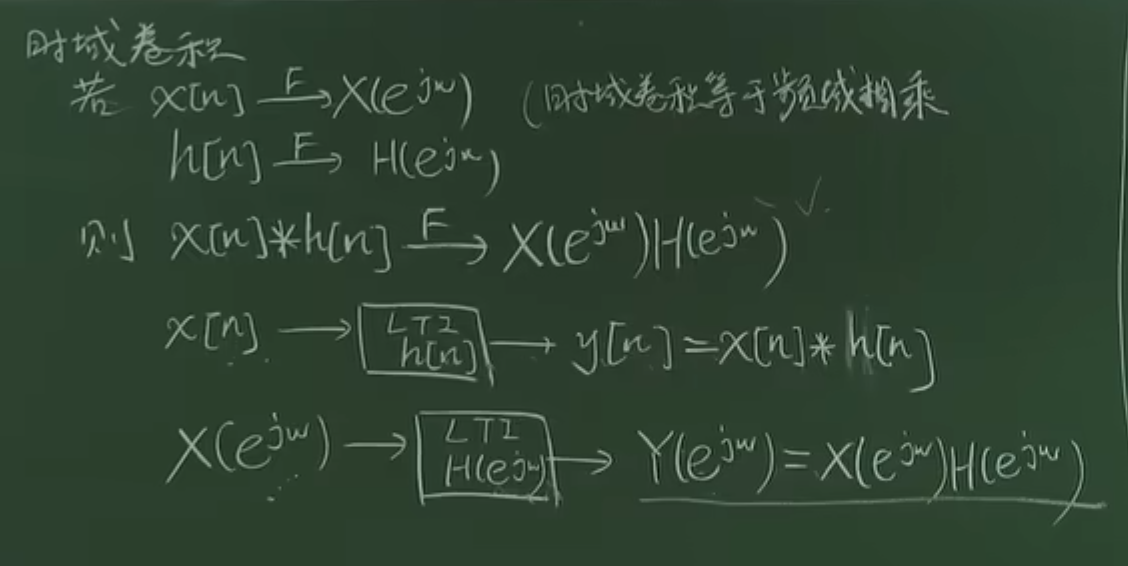 时域卷积
若 x[n] —F→ X(e^{jw}) (时域卷积等于频域相乘
h[n] —F→ H(e^{jw})
则 x[n]*h[n] —F→ X(e^{jw})H(e^{jw}) ✓
x[n] → LTI h[n] → y[n]=x[n]*h[n]
X(e^{jw}) → LTI H(e^{jw}) → Y(e^{jw})=X(e^{jw})H(e^{jw})